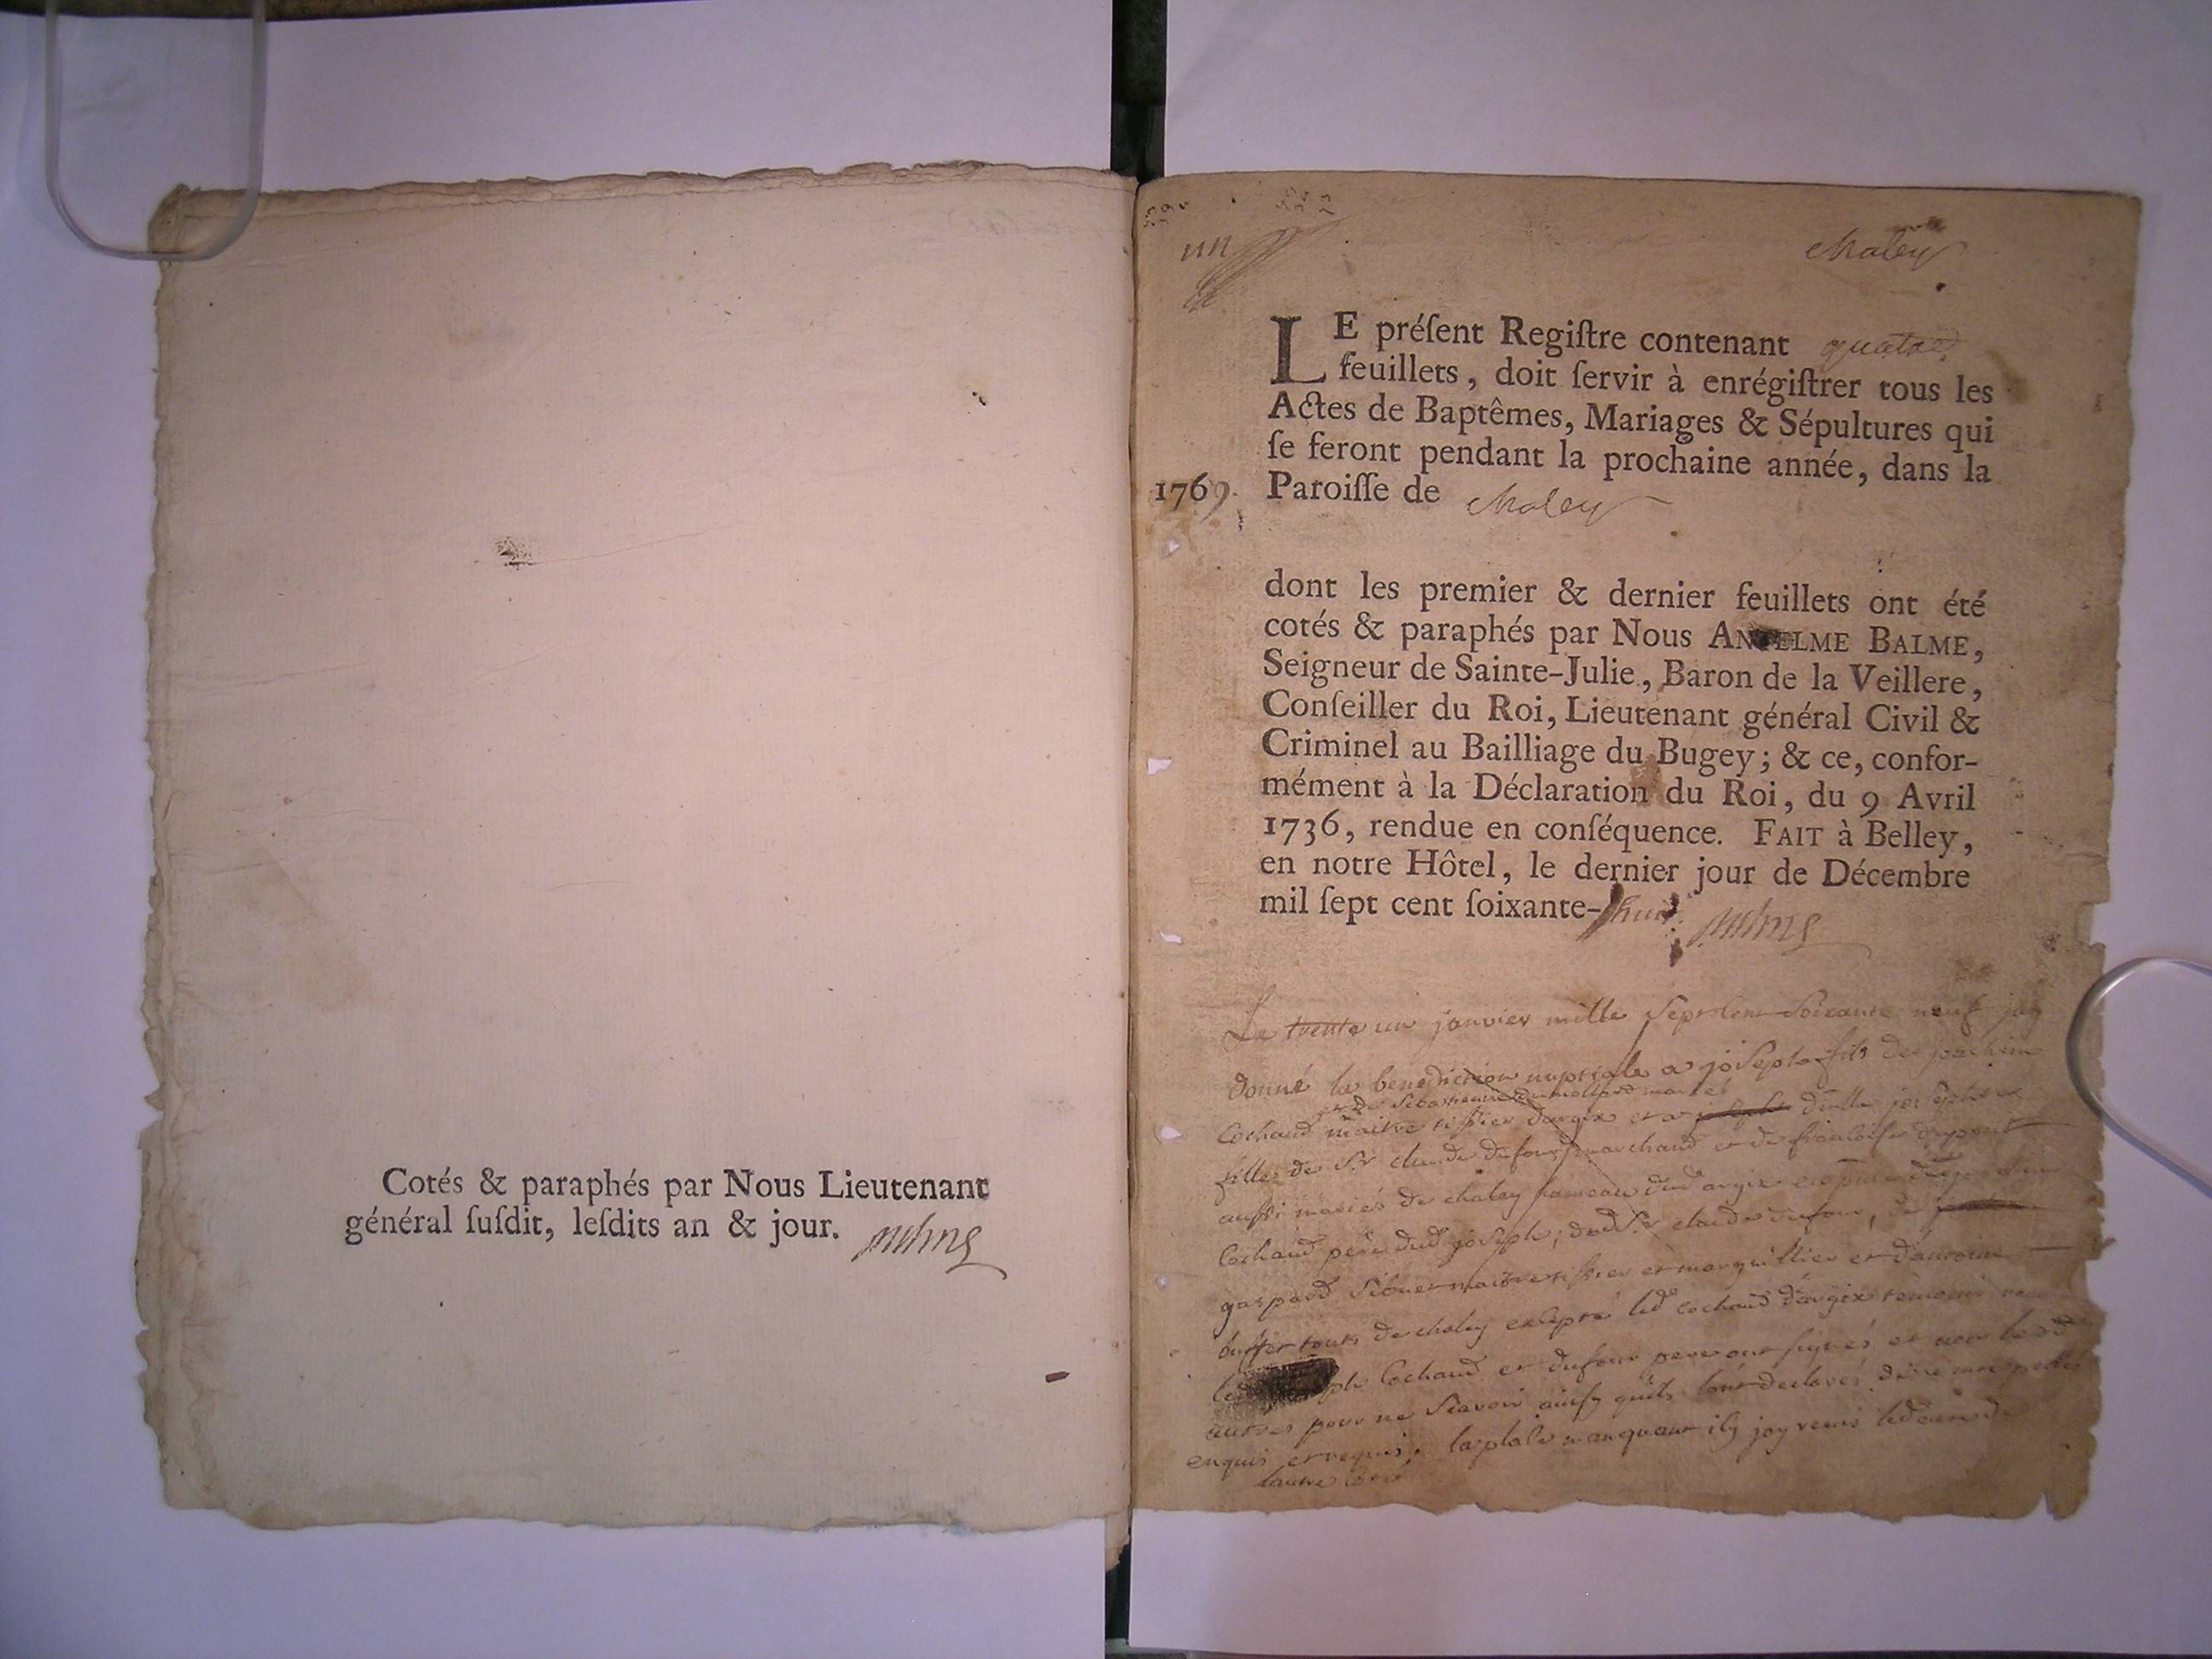 Cotés & paraphés par Nous Lieutenant
général ſuſdit, leſdits an & jour.
un
chaley
LE préſent Regiſtre contenant quatre
feuillets, doit ſervir à enrégiſtrer tous les
Actes de Baptêmes, Mariages & Sépultures qui
ſe feront pendant la prochaine année, dans la
1769. Paroiſſe de chaley
dont les premier & dernier feuillets ont été
cotés & paraphés par Nous ANTELME BALME,
Seigneur de Sainte-Julie, Baron de la Veillere,
Conſeiller du Roi, Lieutenant général Civil &
Criminel au Bailliage du Bugey; & ce, confor-
mément à la Déclaration du Roi, du 9 Avril
1736, rendue en conſéquence. FAIT à Belley,
en notre Hôtel, le dernier jour de Décembre
mil ſept cent ſoixante-huit.
Le trente un janvier mille sept cent soixante neuf jay
donné la benediction nuptiale a joseph fils de joachim
et de sebastienne mariés
Cochand maitre tissier dargix et a dlle
fille de Sr claude dufour marchand et de francoise dupont
aussi mariés de chaley hameau dud argix
Cochand père dud joseph; dud Sr claude dufour, de
gaspard maitre tissier et marguillier et d'antoine
touts de chaley excepté led cochand d'argix temoins
Cochand et dufour pere ont signés et non les
autres pour ne scavoir ainsy quils lont declarés de ce
enquis et requis. la place manquant icy
l'autre coté